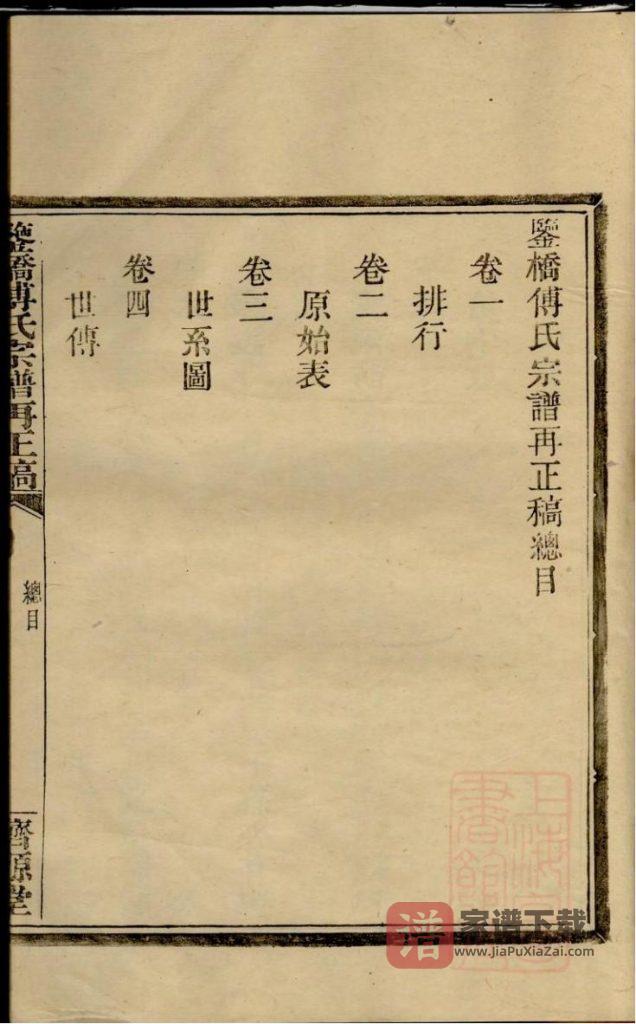 鑒橋傅氏宗譜再正稿總目
卷一
排行
卷二
原始表
卷三
世系圖
卷四
世傳
鑒橋傅氏宗譜再正稿
總目
濟源堂
上海
書館
谱 家谱下载
www.JiaPuXiaZai.com